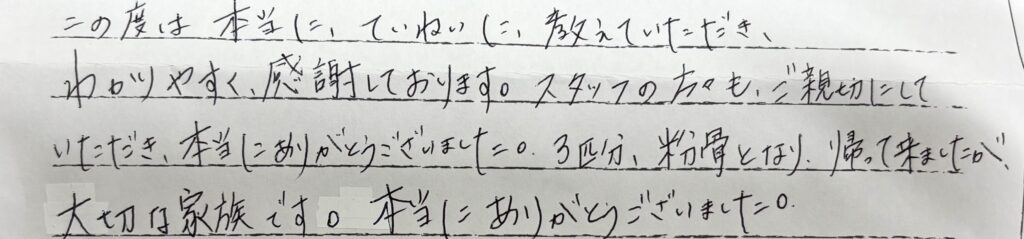 この度は本当に、ていねいに、教えていただき、
わかりやすく、感謝しております。スタッフの方々も、ご親切にして
いただき、本当にありがとうございました。3匹分、粉骨となり、帰って来ましたが、
大切な家族です。本当にありがとうございました。